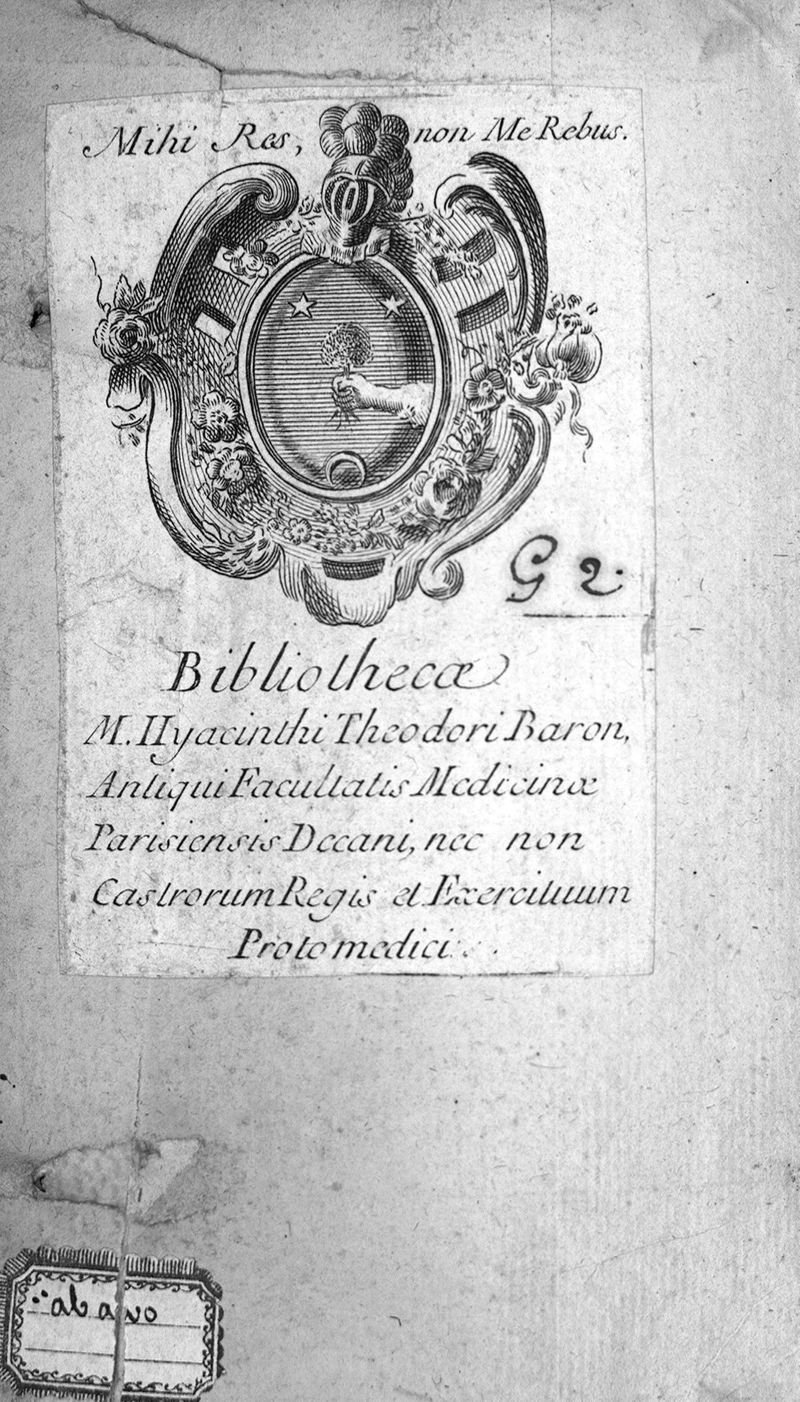 Mihi Res, non Me Rebus.
G 2.
Bibliothecæ
M. Hyacinthi Theodori Baron,
Antiqui Facultatis Medicinæ
Parisiensis Decani, nec non
Castrorum Regis et Exercituum
Protomedici.
ab avo